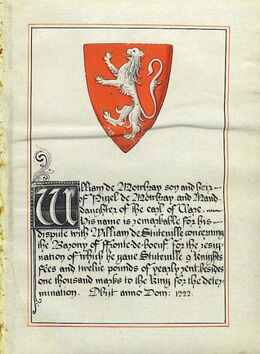 William de Mowbray son and heir
of Nigel de Mowbray, and Maud
daughter of the earl of Clare.
His name is remarkable for his
dispute with William de Stuteville concerning
the Barony of ffronte-de-boeuf for the resig-
nation of which he gave Stuteville 9 Knights
fees and twelve poinds of yearly rent. besides
one thousand marks to the King for the deter-
mination. Obijt anno Dom: 1222.